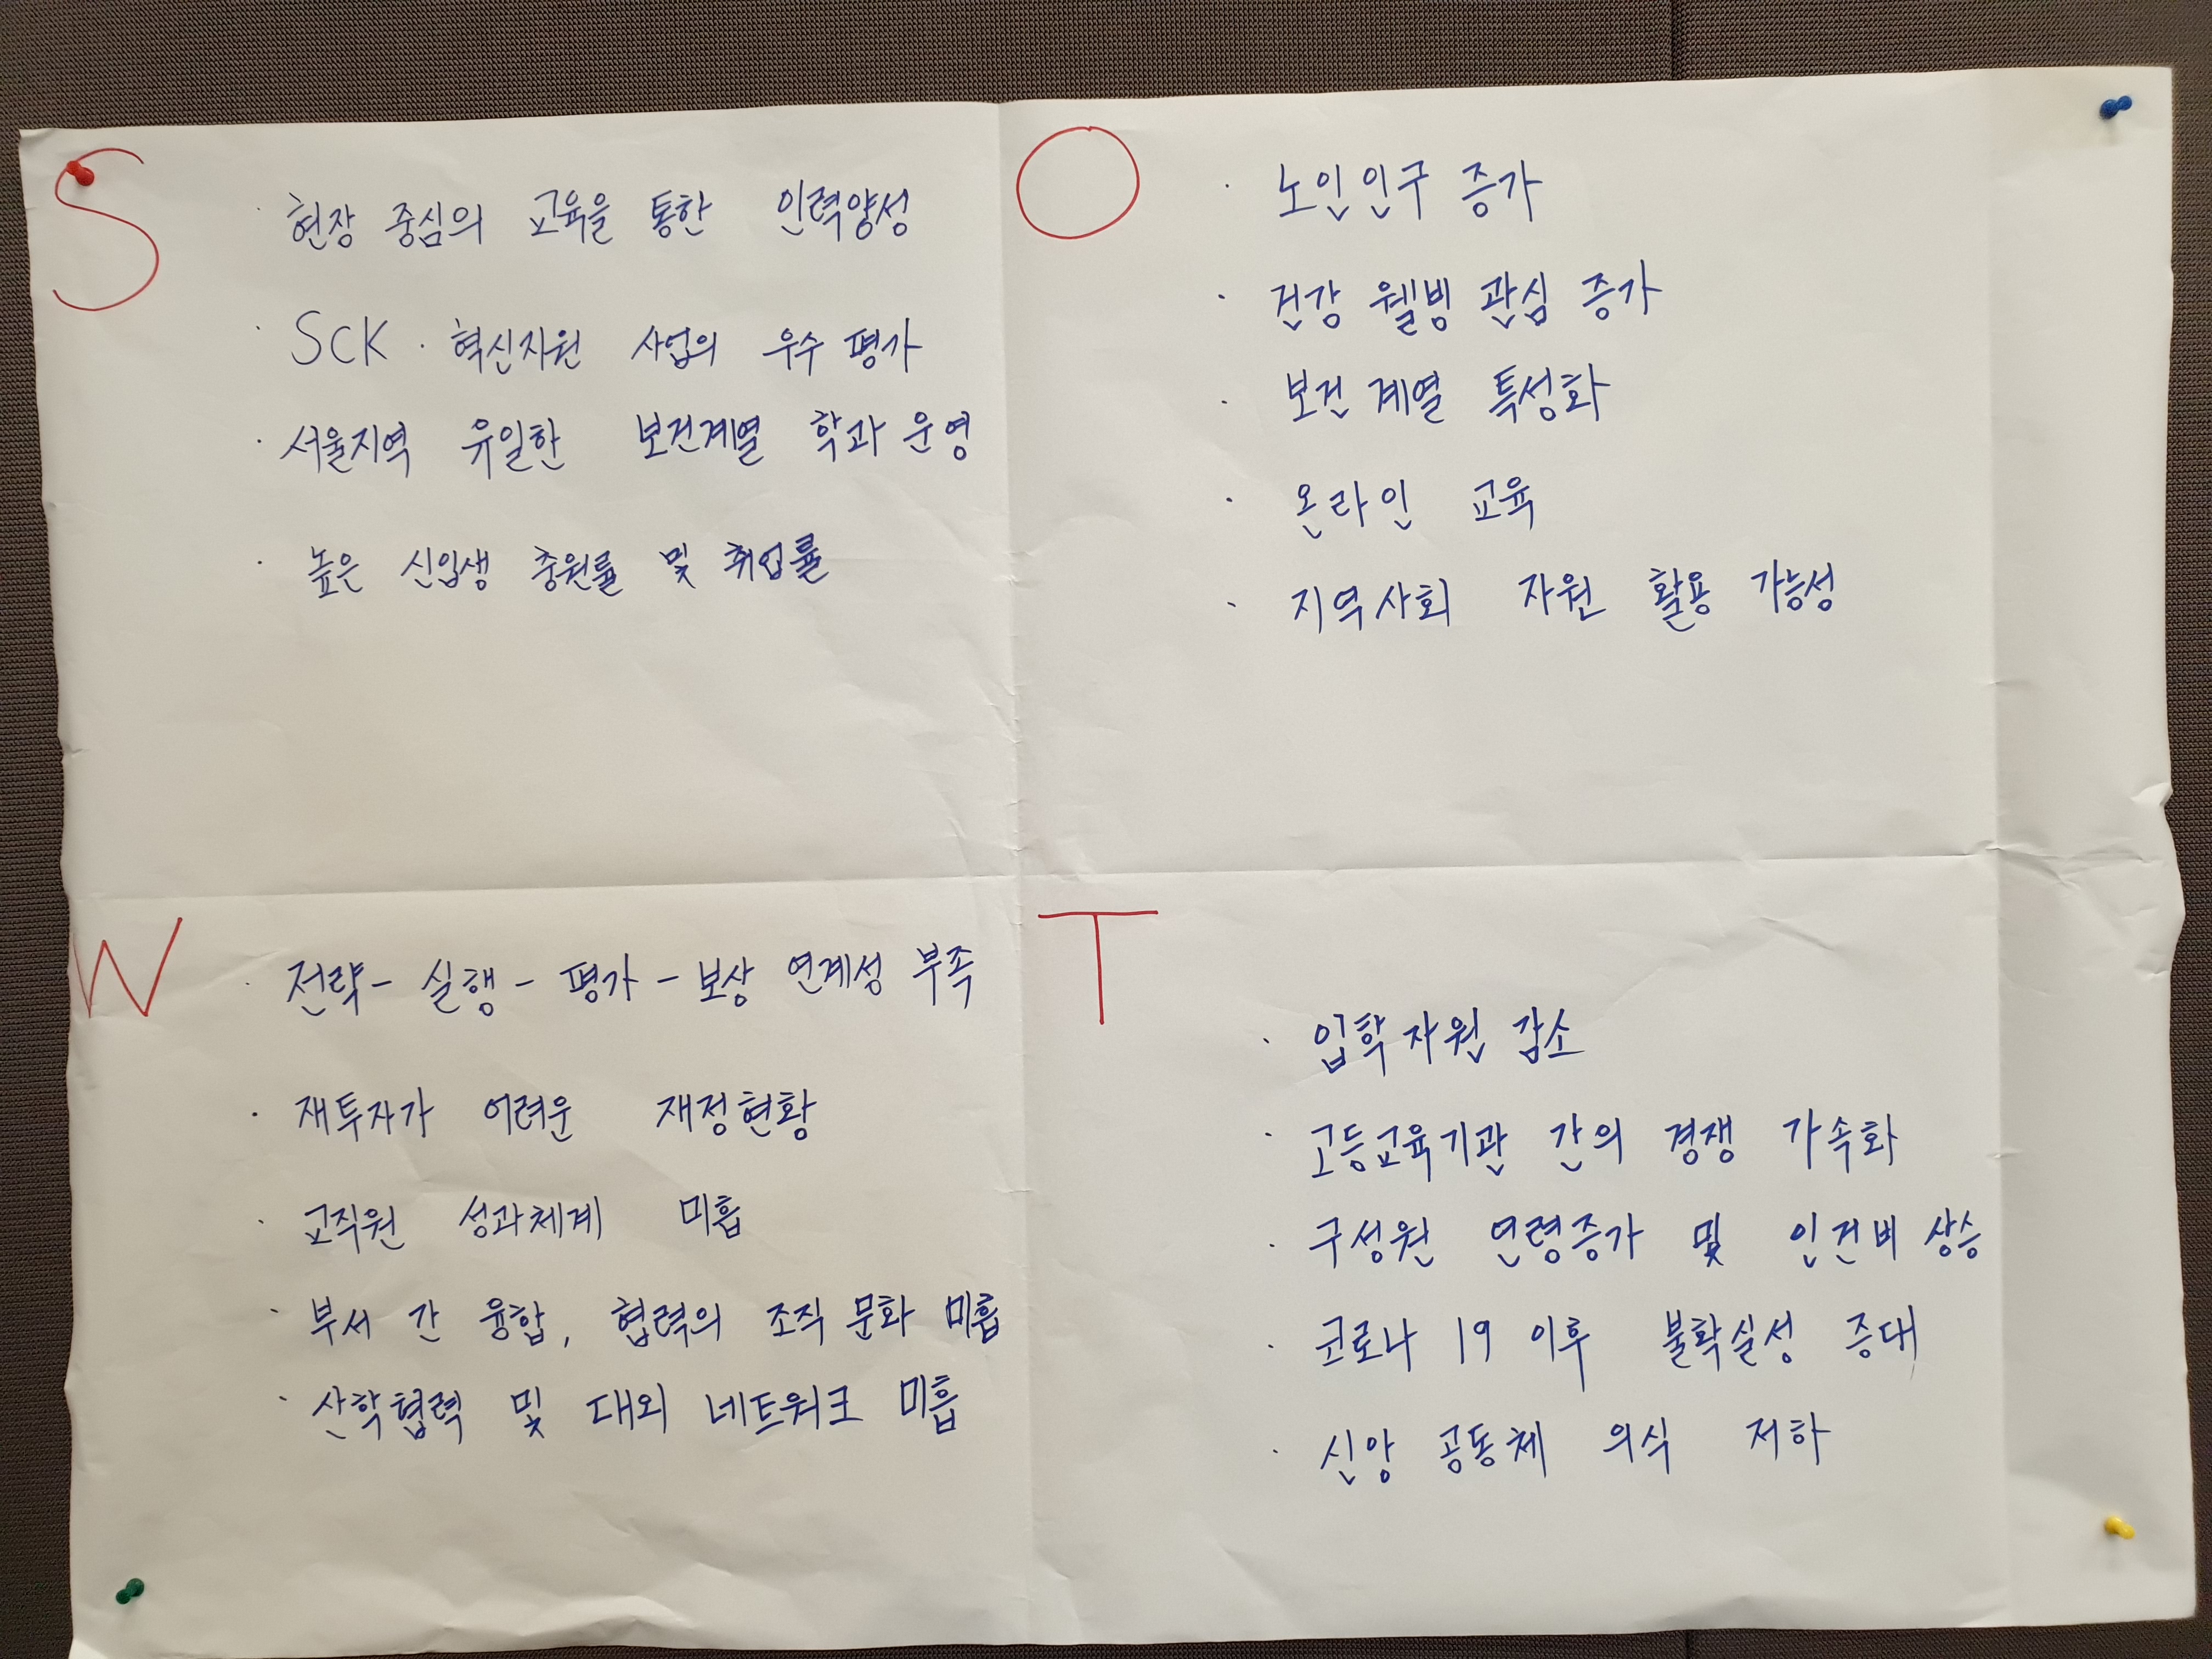 S
· 현장 중심의 교육을 통한 인력양성
· SCK · 혁신지원 사업의 우수 평가
· 서울지역 유일한 보건계열 학과 운영
· 높은 신입생 충원률 및 취업률
O
· 노인인구 증가
· 건강 웰빙 관심 증가
· 보건 계열 특성화
· 온라인 교육
· 지역사회 자원 활용 가능성
W
· 전략 - 실행 - 평가 - 보상 연계성 부족
· 재투자가 어려운 재정현황
· 교직원 성과체계 미흡
· 부서 간 융합, 협력의 조직 문화 미흡
· 산학협력 및 대외 네트워크 미흡
T
· 입학자원 감소
· 고등교육기관 간의 경쟁 가속화
· 구성원 연령증가 및 인건비 상승
· 코로나 19 이후 불확실성 증대
· 신앙 공동체 의식 저하